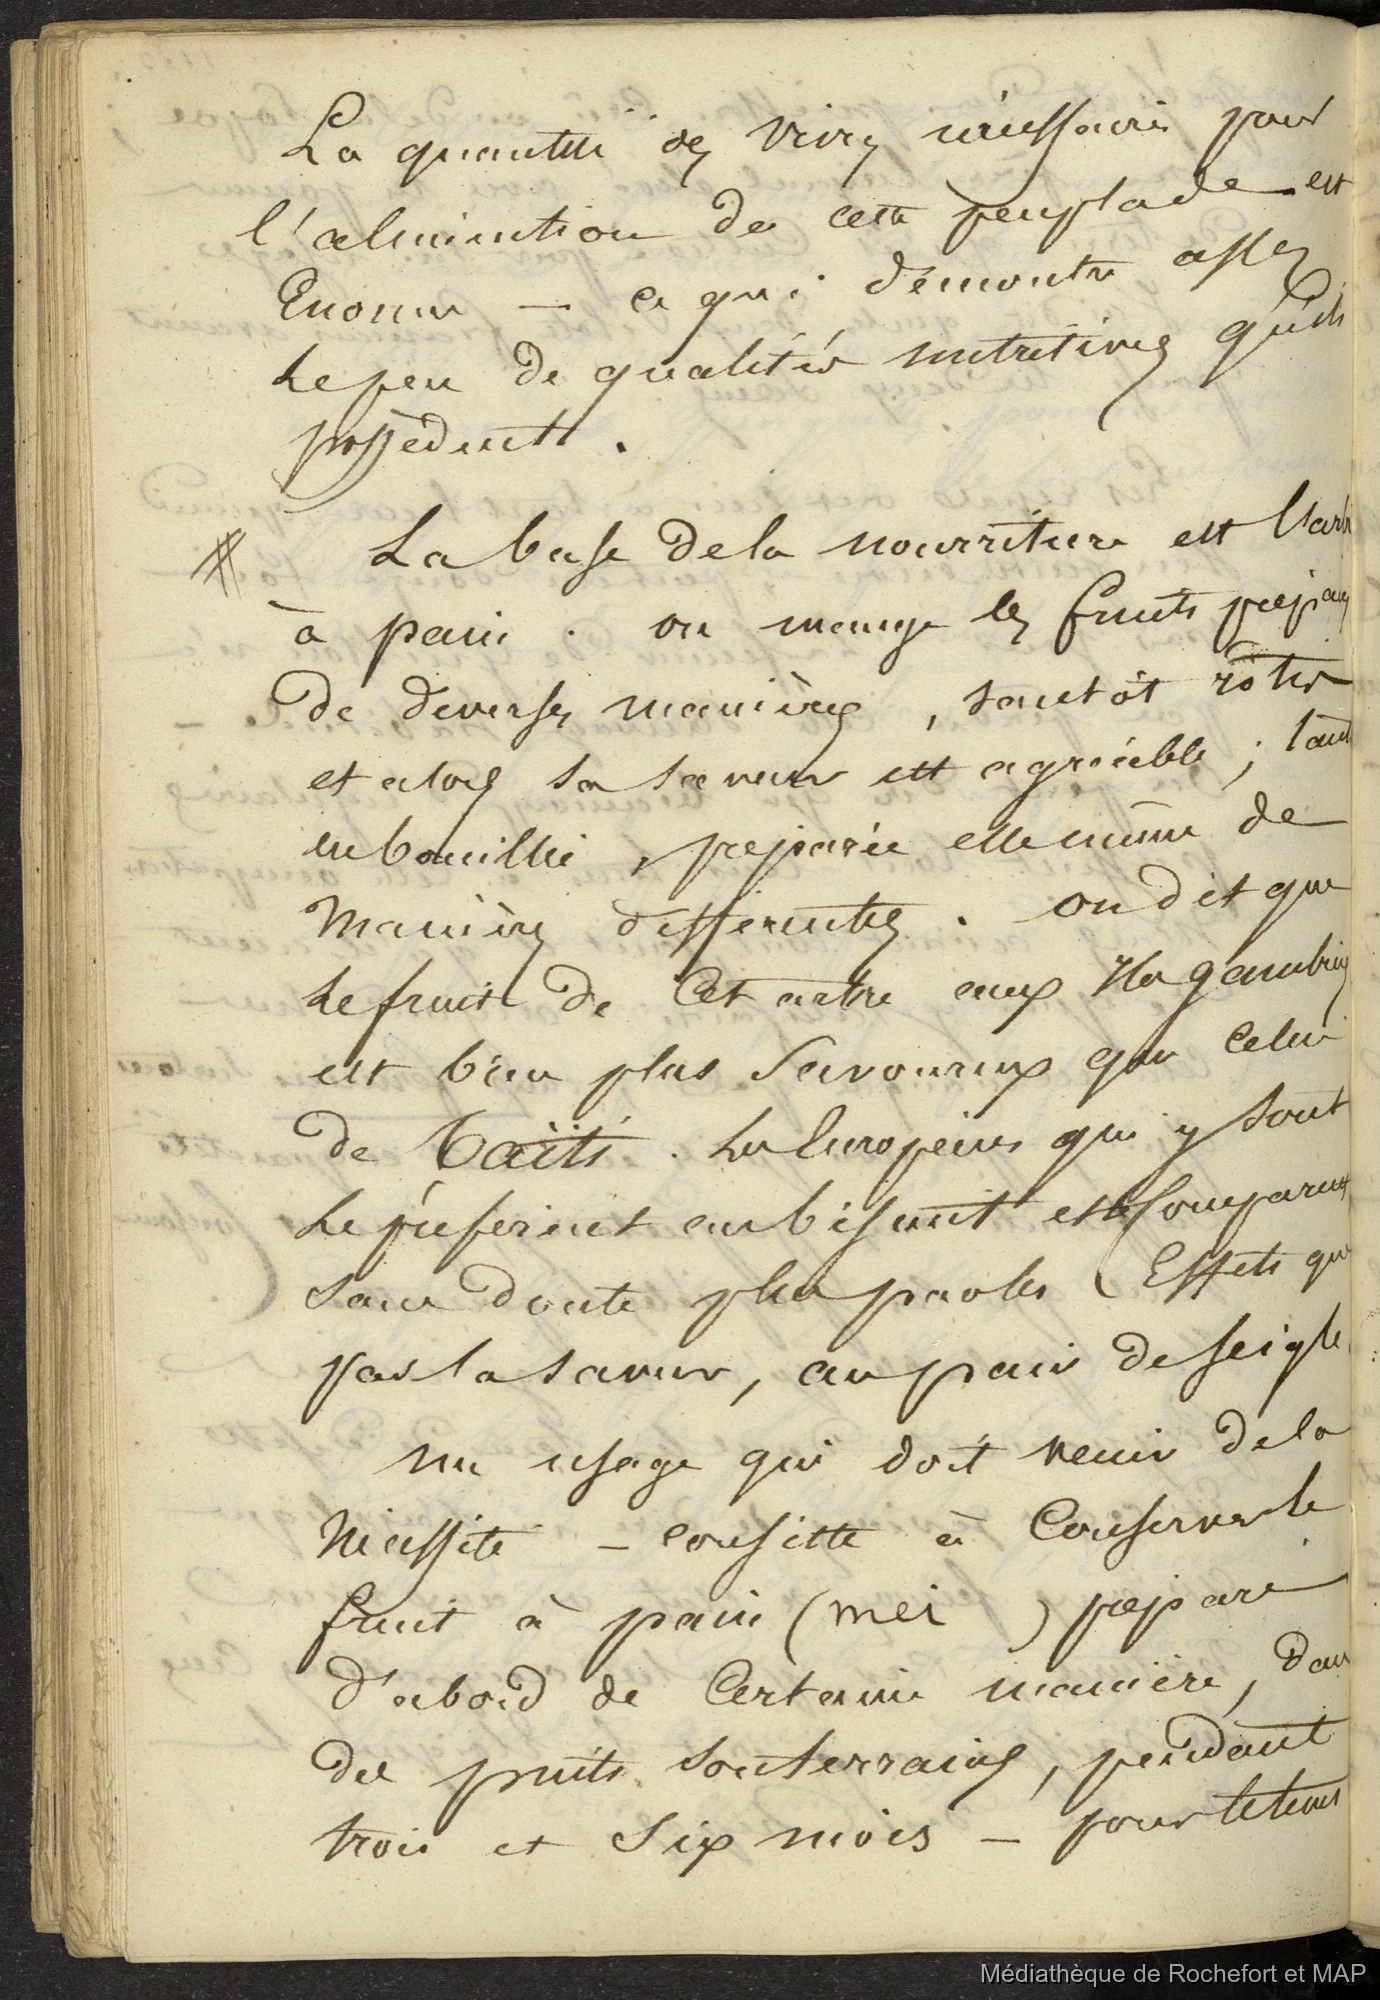 La quantité des vivres nécessaires pour
l'alimention de cette peuplade est
Enorme — ce qui démontre assez
le peu de qualités nutritives qu'ils
possèdent.
# La base de la nourriture est l'arbre
à pain. on mange les fruits préparés
de diverses manières, tantôt rôtis
et alors sa saveur est agréable ; tantôt
en bouillie, préparée elle même de
Manières différentes. on dit que
le fruit de Cet arbre aux Iles gambiers
est bien plus Savoureux que Celui
de Taïti. les Européens qui y sont
le préfèrent au biscuit et le comparent
(sans doute plus par les Effets que
par la saveur, au pain de seigle
un usage qui doit venir de la
Nécessité — consiste à Conserver le
fruit à pain (mei) préparé
d'abord de Certaine manière, dans
des puits souterrains, pendant
trois et Six mois — pour le tems
Médiathèque de Rochefort et MAP